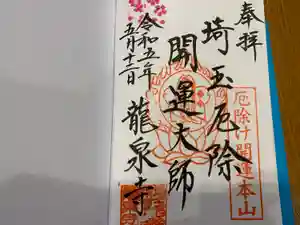 奉拝
埼玉厄除
開運大師
龍泉寺
令和五年
五月十三日
厄除け開運本山